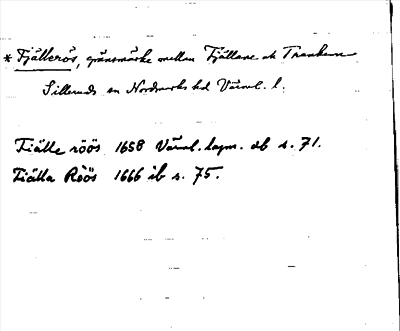 * Fjälleros, gränsmärke mellan Fjällane och Tranken
Silleruds sn Nordmarks hd Värml. l.
Fiälle röös 1658 Värml. lagm. db s. 71.
Fiälla Röös 1666 ib s. 75.